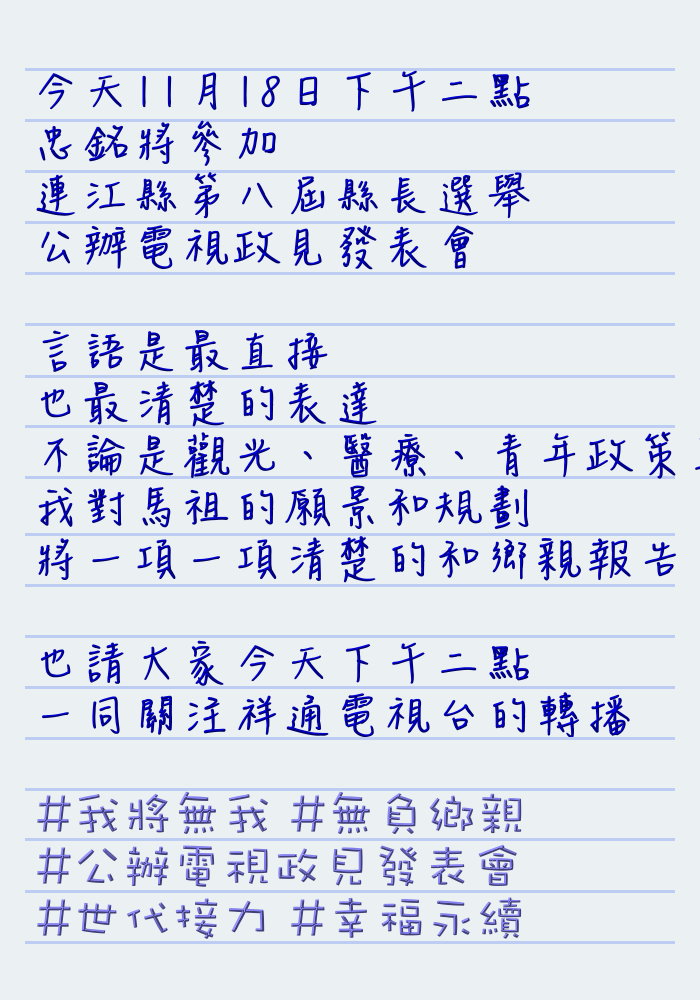 今天11月18日下午二點
忠銘將參加
連江縣第八屆縣長選舉
公辦電視政見發表會
言語是最直接
也最清楚的表達
不論是觀光、醫療、青年政策
我對馬祖的願景和規劃
將一項一項清楚的和鄉親報告
也請大家今天下午二點
一同關注祥通電視台的轉播
#我將無我 #無負鄉親
#公辦電視政見發表會
#世代接力 #幸福永續